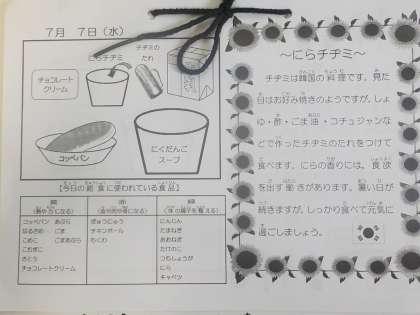 7月 7日(水)
にらチヂミ
チヂミの
たれ
チョコレート
クリーム
コッペパン
にくだんご
スープ
【今日の給食に使われている食品】
黄
赤
緑
(熱や力になる)
(血や肉や骨になる)
(体の調子を整える)
コッペパン あぶら
はるさめ ごま
こめこ ごまあぶら
こむぎこ
さとう
チョコレートクリーム
ぎゅうにゅう
チキンボール
わくわく
にんじん
たまねぎ
たけのこ
つちしょうが
にら
キャベツ
~にらチヂミ~
チヂミは韓国の料理です。見た
目はお好み焼きのようですが、しょ
ゆ・酢・ごま油・コチュジャンな
どで作ったチヂミのたれをつけて
食べます。にらの香りには、食欲
を出す働きがあります。暑い日が
続きますが、しっかり食べて元気に
過ごしましょう。